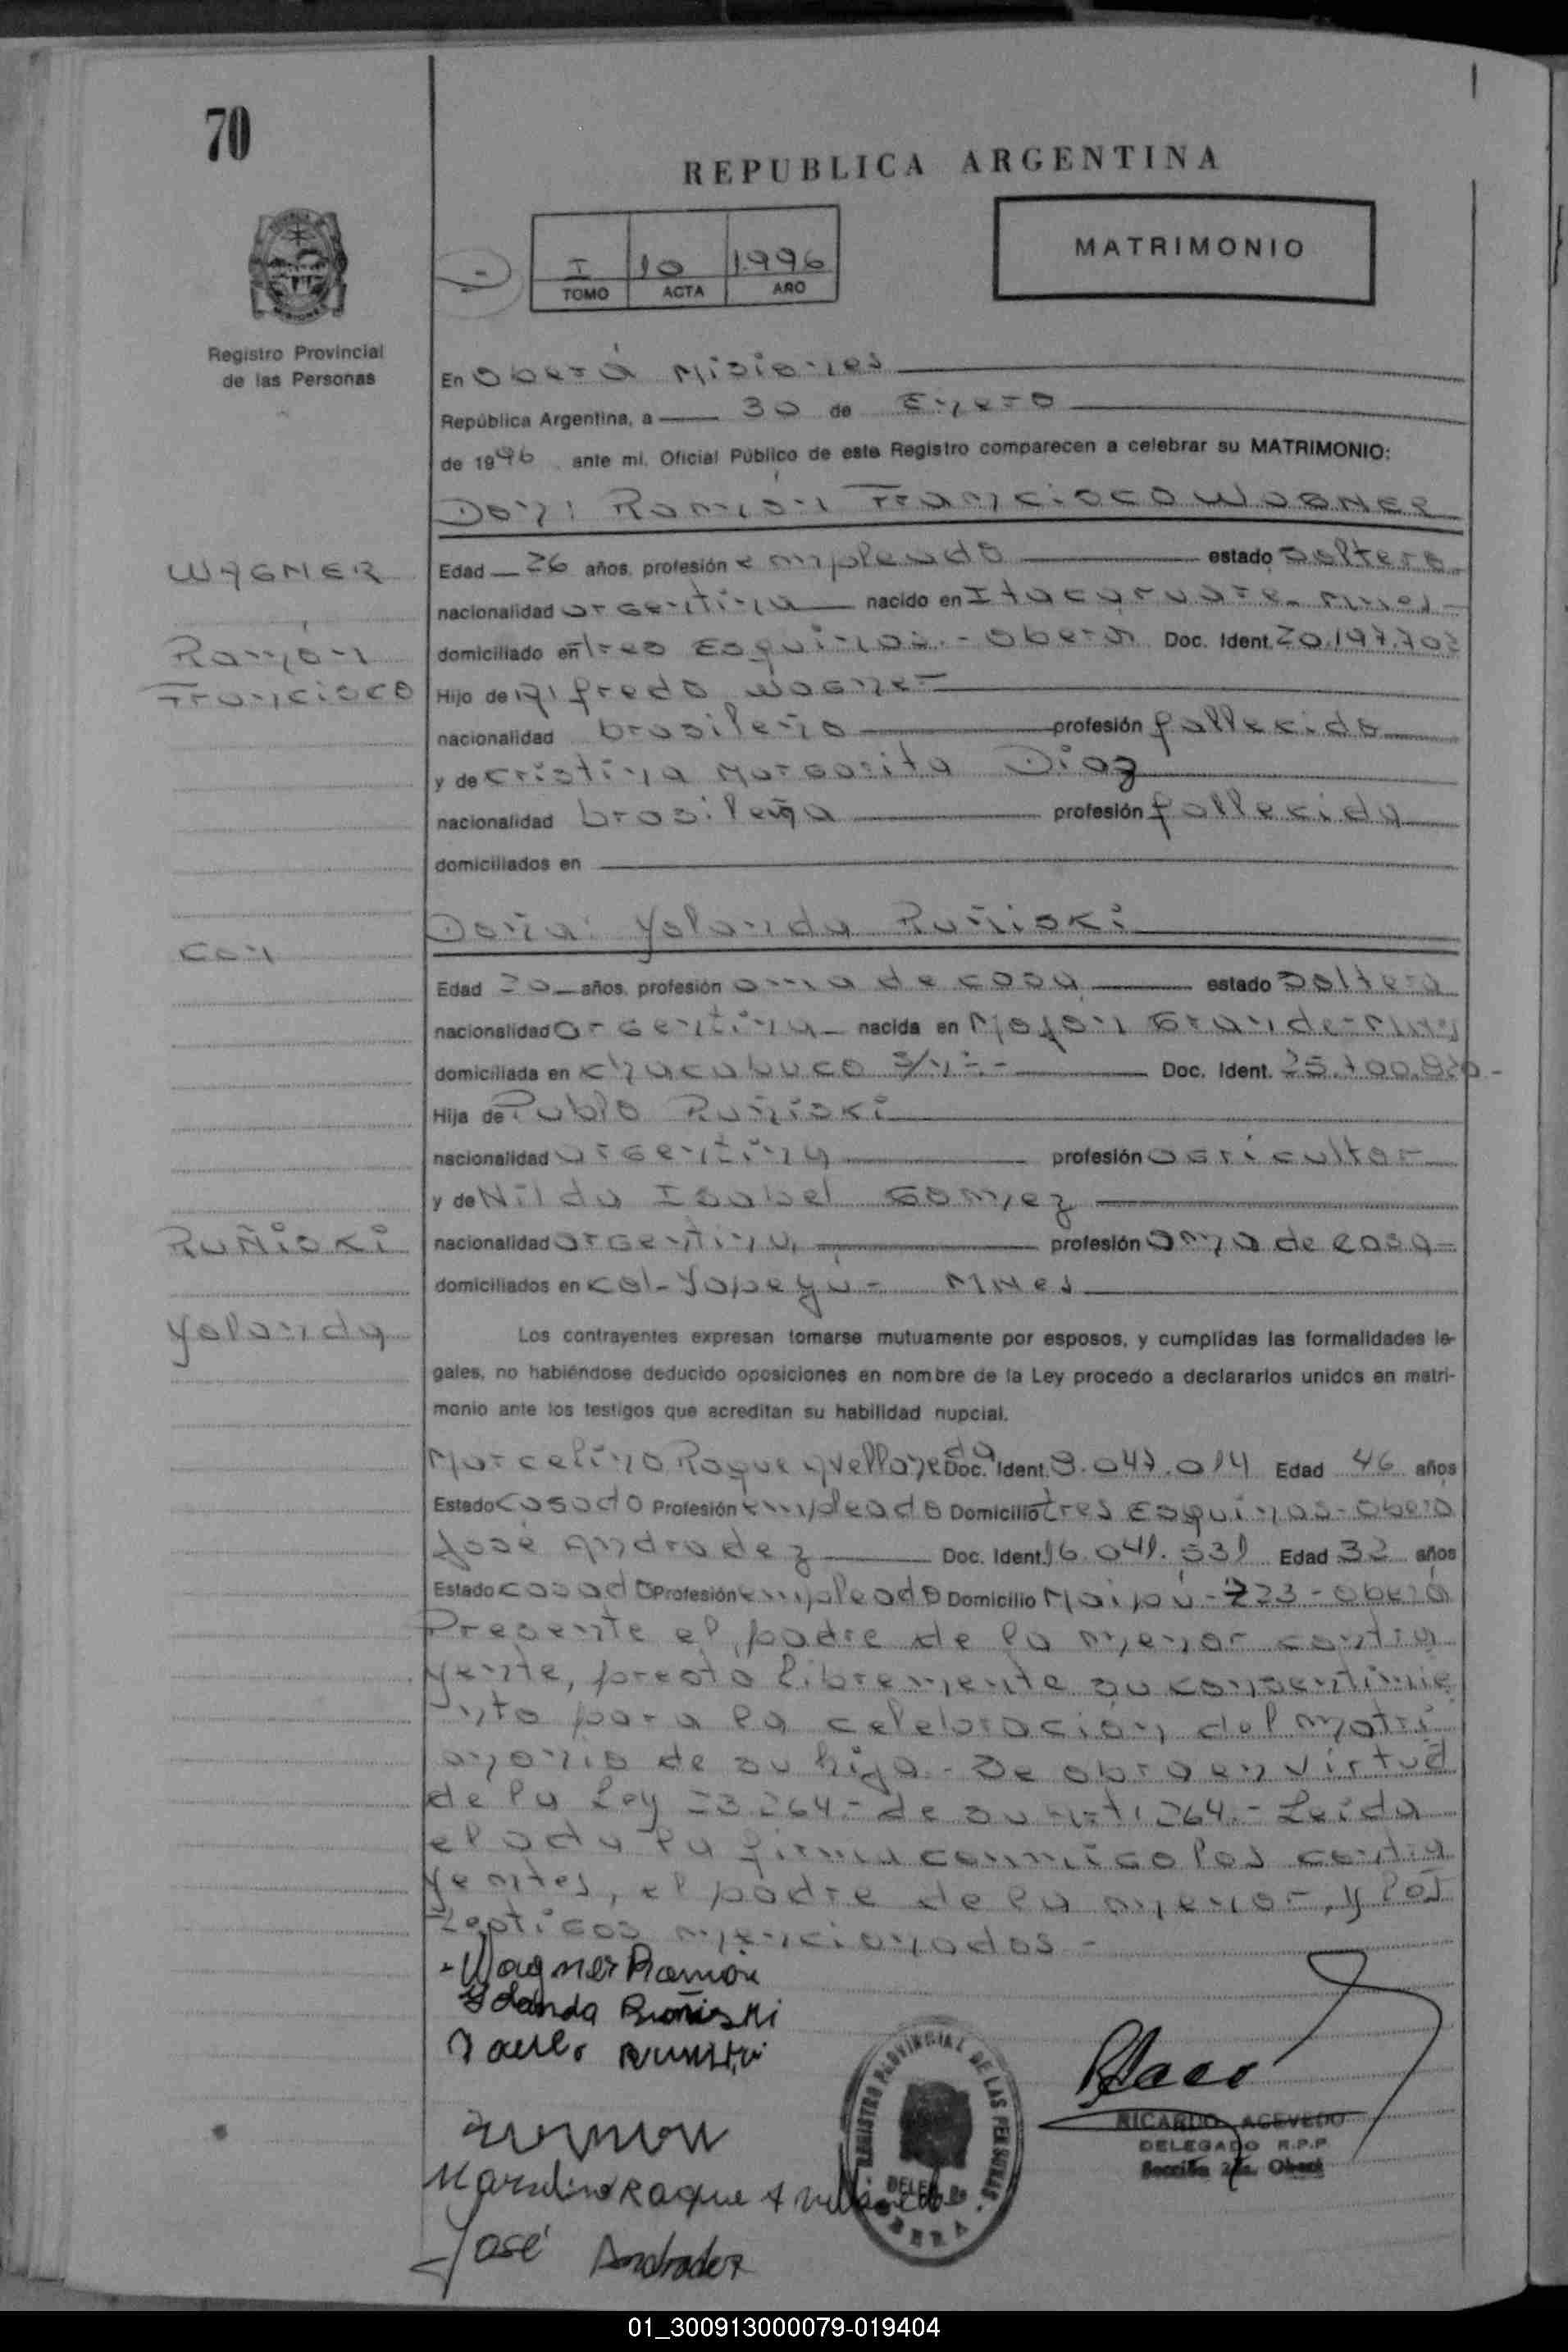 70
REPUBLICA ARGENTINA
MATRIMONIO
I 10 1996
TOMO ACTA AÑO
Registro Provincial
de las Personas
En Oberá Misiones
República Argentina, a 30 de Enero
de 1996 ante mi, Oficial Público de este Registro comparecen a celebrar su MATRIMONIO:
Don: Ramón Francisco WAGNER
WAGNER
Edad 26 años, profesión empleado estado soltero
nacionalidad argentina nacido en Itacaruare - Mnes -
Ramón
domiciliado en Tres Esquinas - Oberá Doc. Ident. 20.197.702
Francisco
Hijo de Alfredo Wagner
nacionalidad brasileño profesión fallecido
y de Cristina Margarita Diaz
nacionalidad brasileña profesión fallecida
domiciliados en
Doña: Yolanda Ruñiski
con
Edad 20 años, profesión ama de casa estado soltera
nacionalidad argentina nacida en Mojon Grande - Mnes
domiciliada en Chacabuco s/n - Doc. Ident. 25.700.820 -
Hija de Pablo Ruñiski
nacionalidad argentina profesión agricultor
y de Nilda Isabel Gomez
Ruñiski
nacionalidad argentina profesión ama de casa -
domiciliados en Col - Yapeyú - Mnes
Yolanda
Los contrayentes expresan tomarse mutuamente por esposos, y cumplidas las formalidades le-
gales, no habiéndose deducido oposiciones en nombre de la Ley procedo a declararlos unidos en matri-
monio ante los testigos que acreditan su habilidad nupcial.
Marcelino Roque Avellaneda Doc. Ident. 8.047.014 Edad 46 años
Estado casado Profesión empleado Domicilio Tres Esquinas - Oberá
José Andradez Doc. Ident. 16.041.531 Edad 32 años
Estado casado Profesión empleado Domicilio Maipú - 223 - Oberá
Presente el padre de la menor contra
yente, presta libremente su consentimie
nto para la celebración del matri
monio de su hija - Se obra en virtud
de la Ley 23.264 - de su Art: 264 - Leida
el acta la firman conmigo los contra
yentes, el padre de la menor, y los
testigos mencionados -
Wagner Ramón
Yolanda Ruñiski
Marcelino Roque Avellaneda
José Andradez
REGISTRO PROVINCIAL DE LAS PERSONAS
OBERA
RICARDO ACEVEDO
DELEGADO R.P.P
Sección 2da. Oberá
01_300913000079-019404